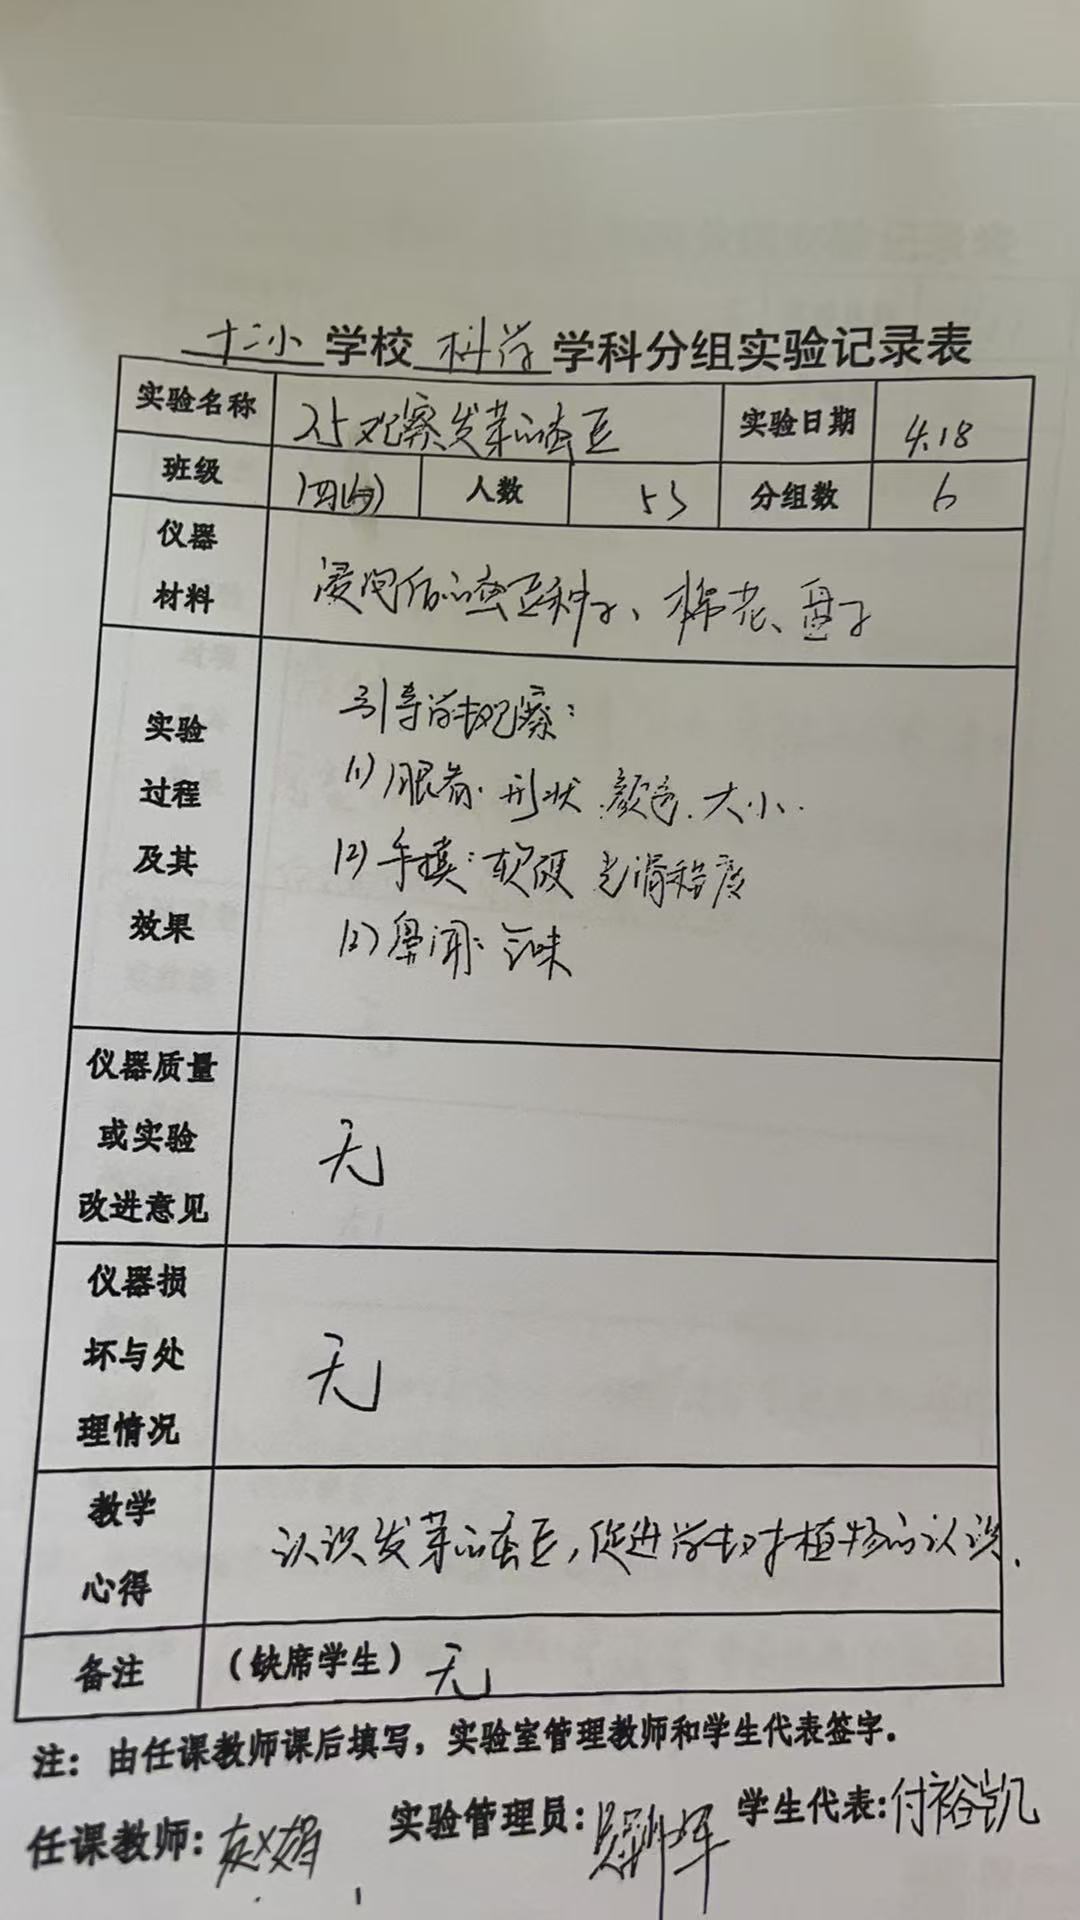 十二小 学校 科学 学科分组实验记录表
实验名称 25观察发芽的蚕豆 实验日期 4.18
班级 人数 53 分组数 6
仪器材料 浸泡后的蚕豆种子、棉花、盘子
实验过程及其效果
引导学生观察:
(1)眼看.形状.颜色.大小.
(2)手摸:软硬 光滑程度
(3)鼻闻:气味
仪器质量或实验改进意见 无
仪器损坏与处理情况 无
教学心得 认识发芽的蚕豆,促进学生对植物的认识.
备注 (缺席学生) 无
注:由任课教师课后填写,实验室管理教师和学生代表签字.
任课教师: 赵娟 实验管理员: 学生代表: 付裕凯